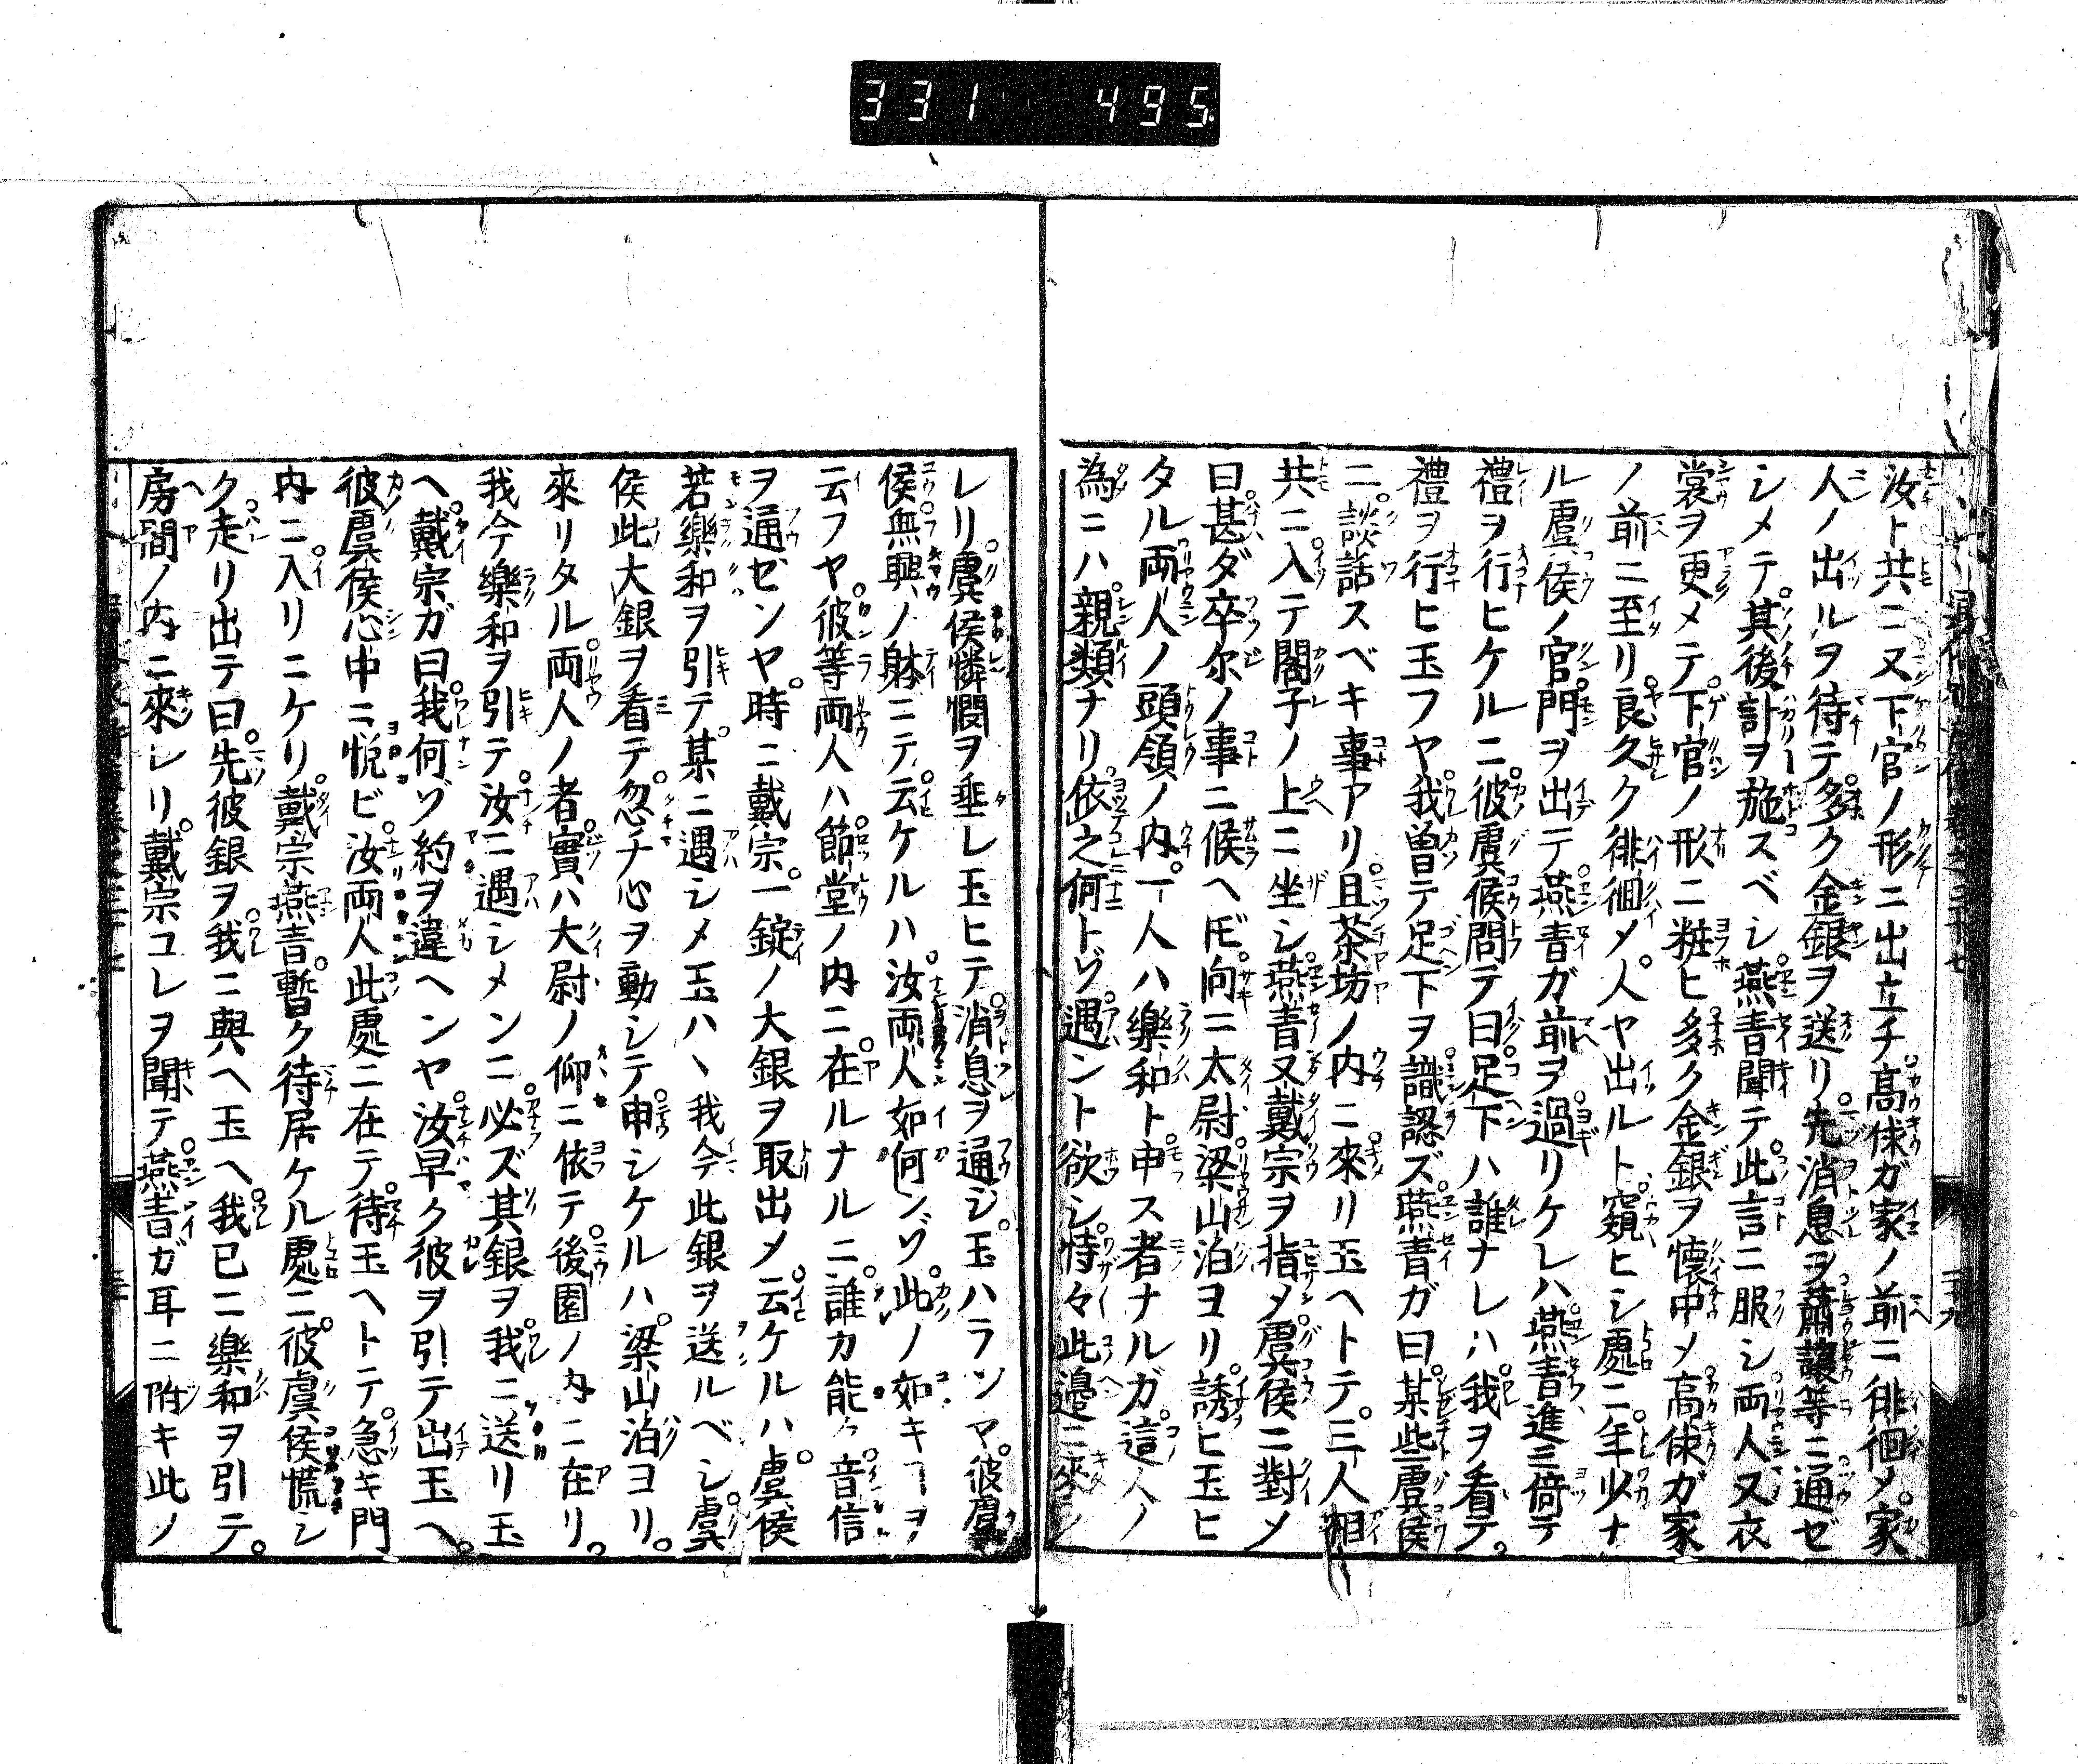 331 495
汝ト共ニ又下官ノ形ニ出立チ高俅ガ家ノ前ニ徘徊メ家
人ノ出ルヲ待テ多ク金銀ヲ送リ先消息ヲ蕭譲等ニ通ゼ
シメテ其後計ヿヲ施スベシ燕青聞テ此言ニ服シ両人又衣
裳ヲ更メテ下官ノ形ニ粧ヒ多ク金銀ヲ懐中メ高俅ガ家
ノ前ニ至リ良久ク徘徊メ人ヤ出ルト窺ヒシ處ニ年少ナ
ル虞侯ノ官門ヲ出テ燕青ガ前ヲ過リケレハ燕青進ミ倚テ
禮ヲ行ヒケルニ彼虞候問テ曰足下ハ誰ナレハ我ヲ看テ
禮ヲ行ヒ玉フヤ我曽テ足下ヲ識認ズ燕青ガ曰某些虞侯
ニ談話スベキ事アリ且茶坊ノ内ニ來リ玉ヘトテ三人相
共ニ入テ閣子ノ上ニ坐シ燕青又戴宗ヲ指メ虞侯ニ對メ
曰甚ダ卒尓ノ事ニ候ヘ𪜈向ニ太尉梁山泊ヨリ誘ヒ玉ヒ
タル両人ノ頭領ノ内一人ハ樂和ト申ス者ナルガ這人ノ
為ニハ親類ナリ依之何トゾ遇ント欲シ恃々此邉ニ來ノ
レリ虞侯憐憫ヲ垂レ玉ヒテ消息ヲ通シ玉ハランヤ彼虞
侯無興ノ躰ニテ云ケルハ汝両人如何ンゾ此ノ如キヿヲ
云フヤ彼等両人ハ節堂ノ内ニ在ルナルニ誰カ能ク音信
ヲ通ゼンヤ時ニ戴宗一錠ノ大銀ヲ取出メ云ケルハ虞侯
若樂和ヲ引テ某ニ遇シメ玉ハヽ我今此銀ヲ送ルベシ虞
侯此大銀ヲ看テ忽チ心ヲ動シテ申シケルハ梁山泊ヨリ
來リタル両人ノ者實ハ大尉ノ仰ニ依テ後園ノ内ニ在リ
我今樂和ヲ引テ汝ニ遇シメンニ必ズ其銀ヲ我ニ送リ玉
ヘ戴宗ガ曰我何ゾ約ヲ違ヘンヤ汝早ク彼ヲ引テ出玉ヘ
彼虞侯心中ニ悦ビ汝両人此處ニ在テ待玉ヘトテ急キ門
内ニ入リニケリ戴宗燕青暫ク待居ケル處ニ彼虞侯慌シ
ク走リ出テ曰先彼銀ヲ我ニ與ヘ玉ヘ我已ニ樂和ヲ引テ
房間ノ内ニ來レリ戴宗コレヲ聞テ燕青ガ耳ニ附キ此ノ